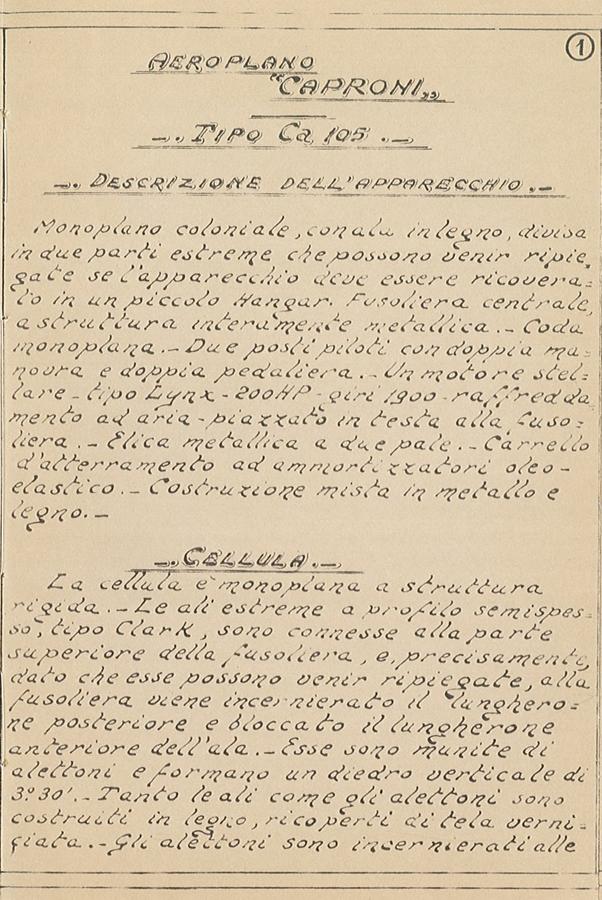 1
AEROPLANO
"CAPRONI„
_.. TIPO Ca 105 ._
_.. DESCRIZIONE DELL'APPARECCHIO ._
Monoplano coloniale, con ala in legno, divisa
in due parti estreme che possono venir ripie=
gate se l'apparecchio deve essere ricovera=
to in un piccolo Hangar. Fusoliera centrale,
a struttura interamente metallica._ Coda
monoplana._ Due posti piloti con doppia ma=
novra e doppia pedaliera._ Un motore stel=
lare - tipo Lynx - 200HP - giri 1900 - raffredda=
mento ad aria - piazzato in testa alla fuso=
liera._ Elica metallica a due pale._ Carrello
d'atterramento ad ammortizzatori oleo-
elastico._ Costruzione mista in metallo e
legno._
_.. CELLULA ._
La cellula è monoplana a struttura
rigida._ Le ali estreme a profilo semispes=
so, tipo Clark, sono connesse alla parte
superiore della fusoliera, e, precisamente,
dato che esse possono venir ripiegate, alla
fusoliera viene incernierato il lunghero=
ne posteriore e bloccato il lungherone
anteriore dell'ala._ Esse sono munite di
alettoni e formano un diedro verticale di
3°30'._ Tanto le ali come gli alettoni sono
costruiti in legno, ricoperti di tela verni=
ciata._ Gli alettoni sono incernierati alle